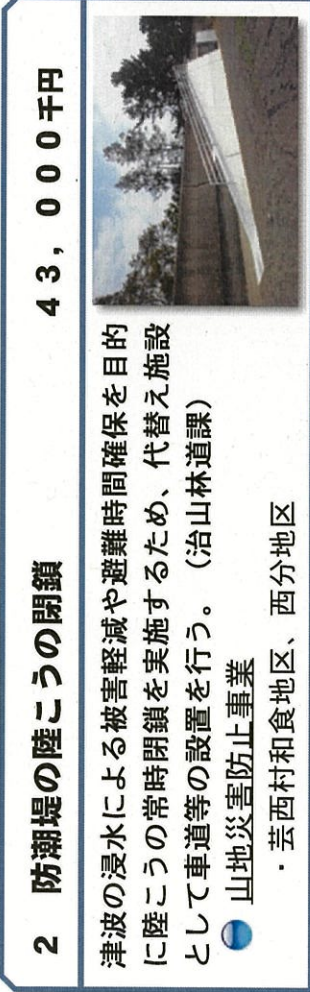 2　防潮堤の陸こうの閉鎖　　　　　４３，０００千円
津波の浸水による被害軽減や避難時間確保を目的
に陸こうの常時閉鎖を実施するため、代替え施設
として車道等の設置を行う。（治山林道課）
山地災害防止事業
・芸西村和食地区、西分地区